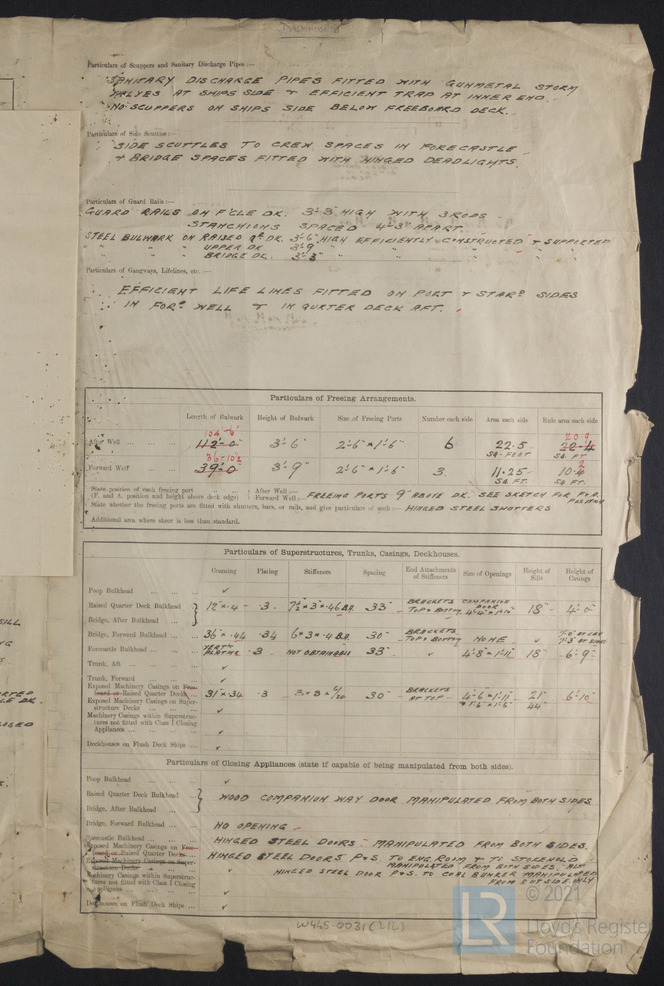 Particulars of Scuppers and Sanitary Discharge Pipes :—
SANITARY DISCHARGE PIPES FITTED WITH GUNMETAL STORM
VALVES AT SHIPS SIDE & EFFICIENT TRAP AT INNER END
NO SCUPPERS ON SHIPS SIDE BELOW FREEBOARD DECK.
Particulars of Side Scuttles :—
SIDE SCUTTLES TO CREW SPACES IN FORECASTLE
& BRIDGE SPACES FITTED WITH HINGED DEADLIGHTS.
Particulars of Guard Rails :—
GUARD RAILS ON F'CLE DK. 3'-3" HIGH WITH 3 RODS
STANCHIONS SPACED 4'-3" APART.
STEEL BULWARK ON RAISED QR DK. 3'-6" HIGH EFFICIENTLY CONSTRUCTED & SUPPORTED
" " " UPPER DK 3'-9" " " "
" " " BRIDGE DK. 3'-3" " " "
Particulars of Gangways, Lifelines, etc. :—
EFFICIENT LIFE LINES FITTED ON PORT & STARD SIDES
IN FORD WELL & IN QURTER DECK AFT.
Particulars of Freeing Arrangements.
Length of Bulwark Height of Bulwark Size of Freeing Ports Number each side Area each side Rule area each side
After Well 112'-0" 3'-6" 2'-6" × 1'-6" 6 22.5 SQ. FEET 20.4 SQ. FT
Forward Well 39'-0" 3'-9" 2'-6" × 1'-6" 3 11.25 SQ FT. SQ FT.
State position of each freeing port After Well :—
(F. and A. position and height above deck edge) Forward Well :— FREEING PORTS 9" ABOVE DK. SEE SKETCH FOR F & A. POSITION
State whether the freeing ports are fitted with shutters, bars, or rails, and give particulars of each :— HINGED STEEL SHUTTERS
Additional area where sheer is less than standard.
Particulars of Superstructures, Trunks, Casings, Deckhouses.
Coaming Plating Stiffeners Spacing End Attachments of Stiffeners Size of Openings Height of Sills Height of Casings
Poop Bulkhead ✓
Raised Quarter Deck Bulkhead 12" × .4 .3 7½ × 3 × .46 B.A. 33" BRACKETS TOP & BOTTOM COMPANION DOOR 18" 4'-0"
Bridge, After Bulkhead
Bridge, Forward Bulkhead 36" × .44 .34 6 × 3 × .4 B.A. 30" BRACKETS TOP & BOTTOM NONE ✓
Forecastle Bulkhead .3 NOT OBTAINABLE 33" " 4'-8" × 1'-11" 18" 6'-9"
Trunk, Aft ✓
Trunk, Forward ✓
Exposed Machinery Casings on Free-
board or Raised Quarter Decks 31" × .34 .3 30" BRACKETS AT TOP 4'-6 × 1'-11" 21" 6'-10"
Exposed Machinery Casings on Super-
structure Decks 1'-6" × 1'-6" 44"
Machinery Casings within Superstruc-
tures not fitted with Class I Closing
Appliances ✓
Deckhouses on Flush Deck Ships ✓
Particulars of Closing Appliances (state if capable of being manipulated from both sides).
Poop Bulkhead ✓
Raised Quarter Deck Bulkhead
WOOD COMPANION WAY DOOR MANIPULATED FROM BOTH SIDES
Bridge, After Bulkhead
Bridge, Forward Bulkhead NO OPENING
Forecastle Bulkhead HINGED STEEL DOORS. MANIPULATED FROM BOTH SIDES.
Exposed Machinery Casings on Free-
board or Raised Quarter Decks HINGED STEEL DOORS P & S. TO ENG ROOM & TO STOKEHOLD
MANIPULATED FROM BOTH SIDES, ALSO
Exposed Machinery Casings on Super-
structure Decks HINGED STEEL DOOR P & S. TO COAL BUNKER MANIPULATED
FROM OUTSIDE ONLY
Machinery Casings within Superstruc-
tures not fitted with Class I Closing
Appliances ✓
Deckhouses on Flush Deck Ships ✓
W445-0031 (2/2)
© 2021
LR
Lloyd's Register
Foundation